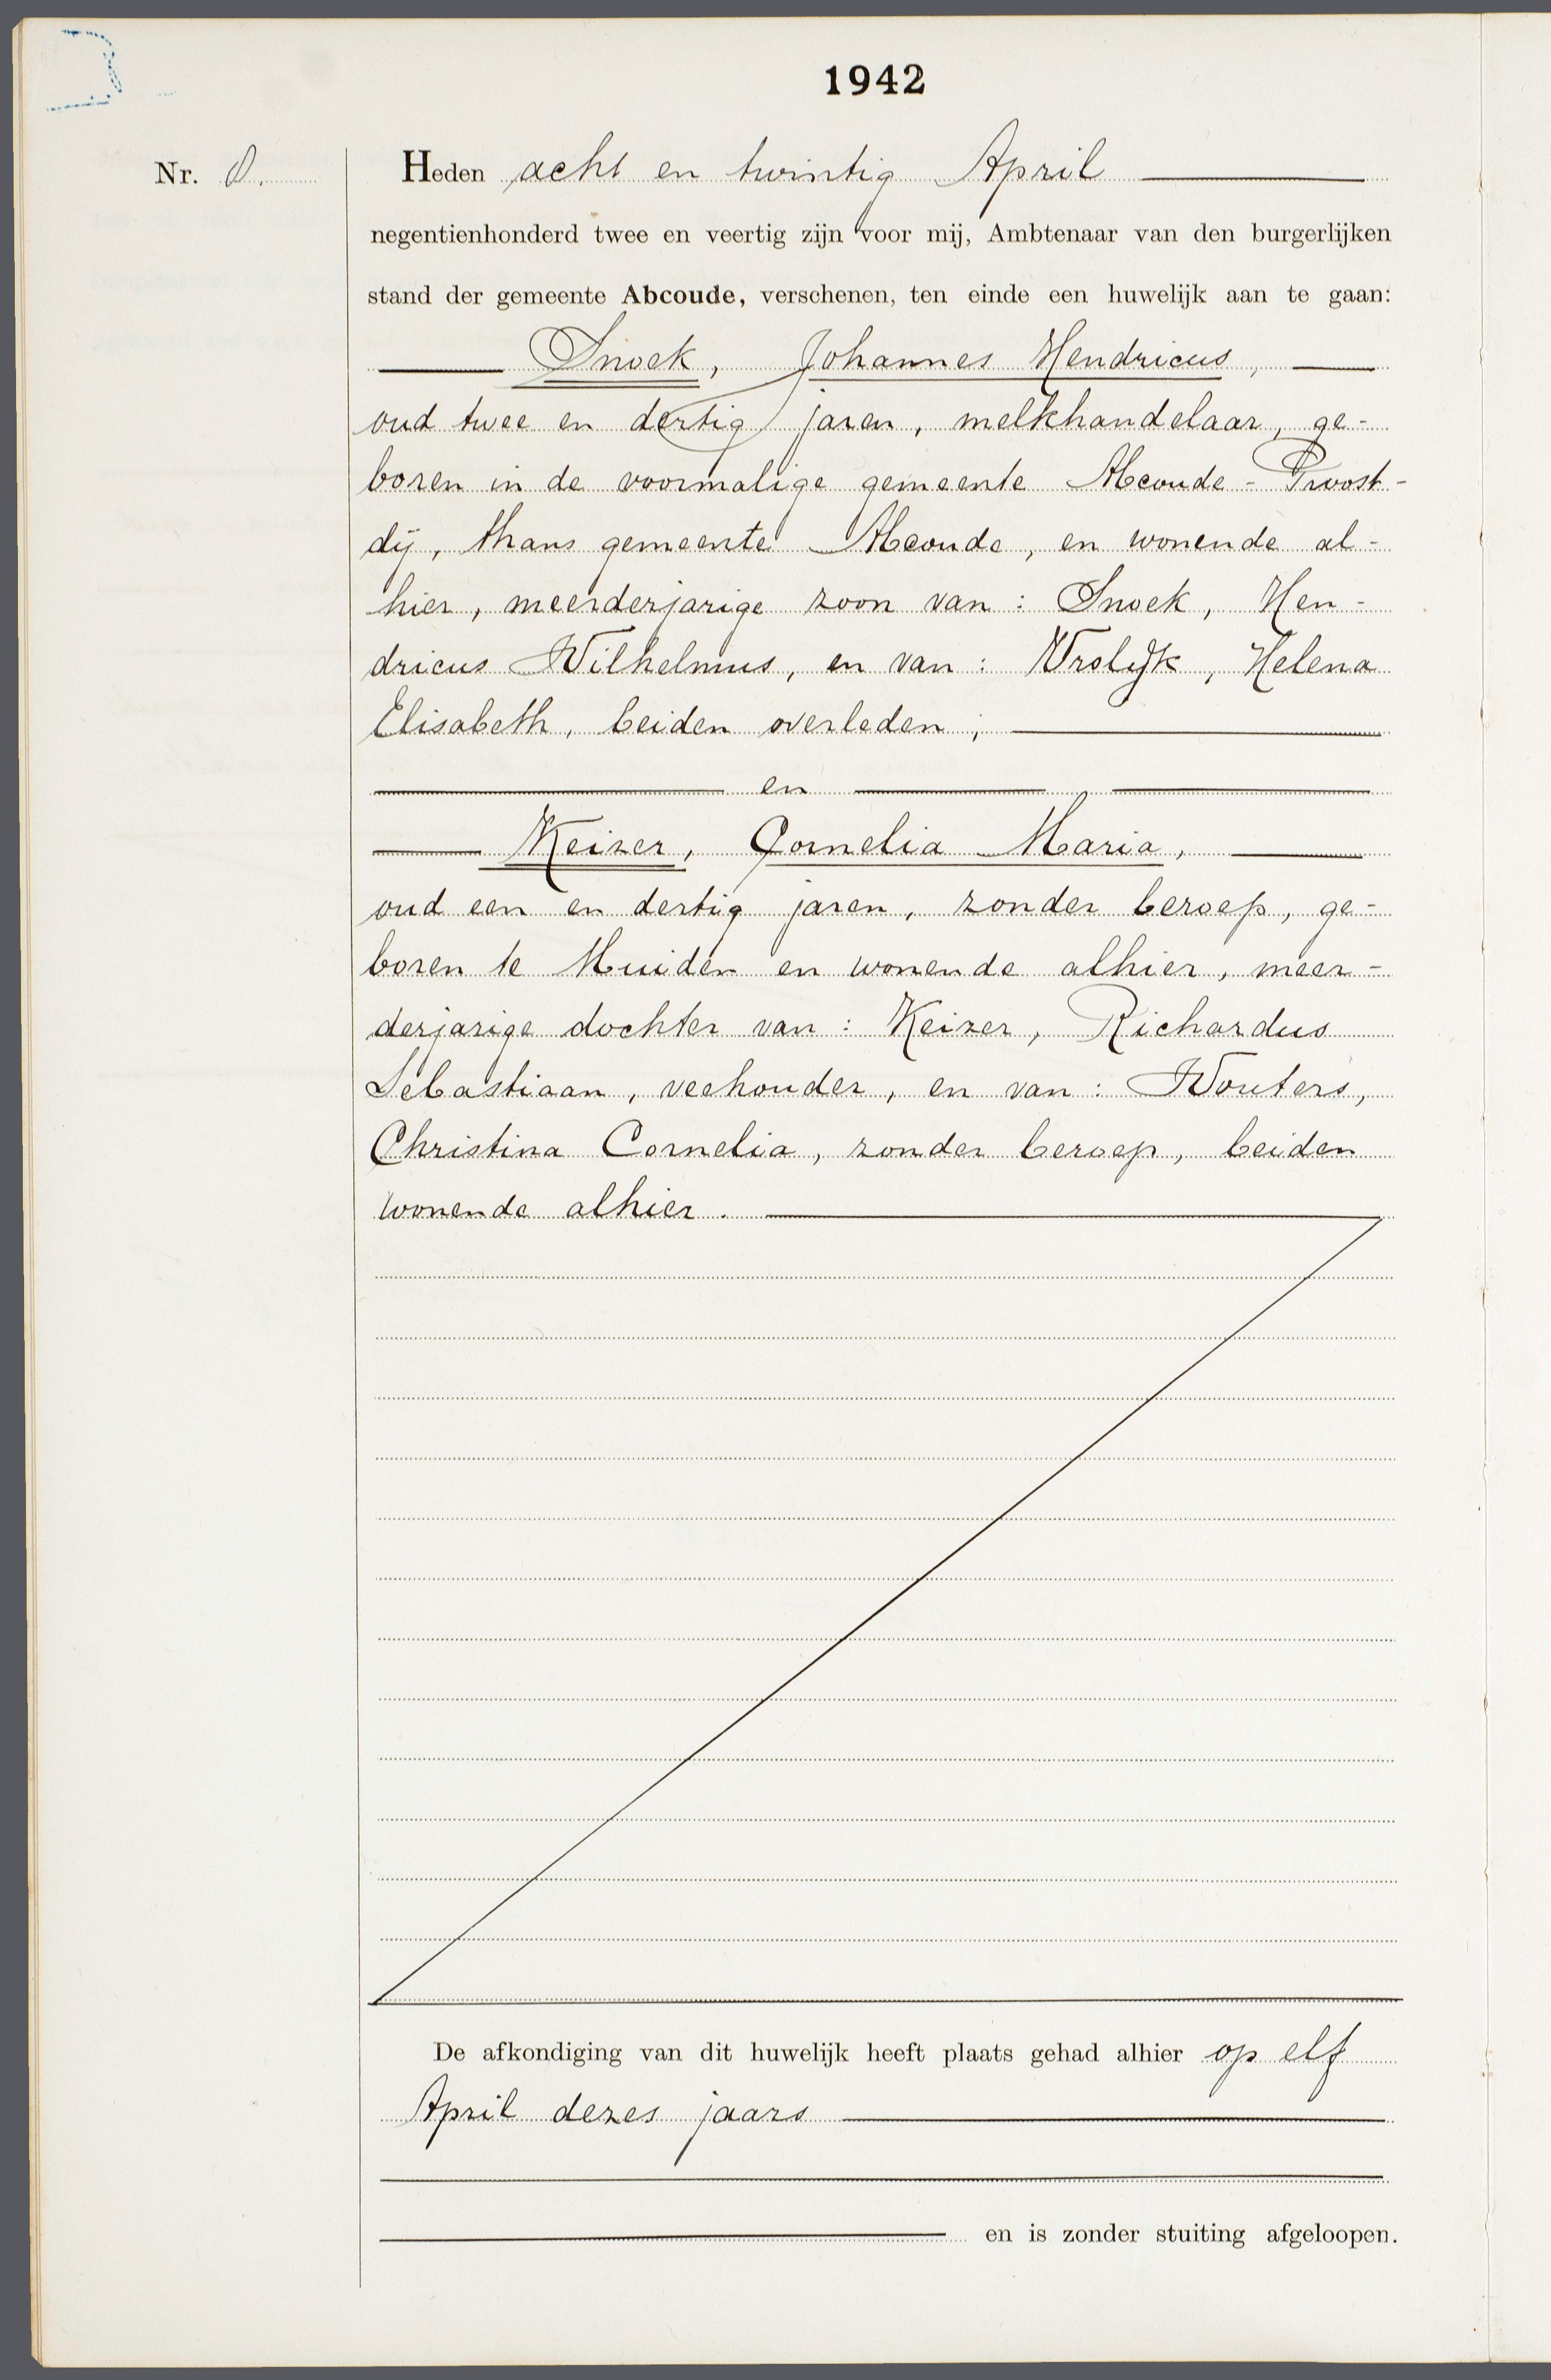 1942
Nr. 8.
Heden acht en twintig April
negentienhonderd twee en veertig zijn voor mij, Ambtenaar van den burgerlijken
stand der gemeente Abcoude, verschenen, ten einde een huwelijk aan te gaan:
Snoek, Johannes Hendricus,
oud twee en dertig jaren, melkhandelaar, ge-
boren in de voormalige gemeente Abcoude-Proost-
dij, thans gemeente Abcoude, en wonende al-
hier, meerderjarige zoon van: Snoek, Hen-
dricus Wilhelmus, en van: Vrolijk, Helena
Elisabeth, beiden overleden;
en
Keizer, Cornelia Maria,
oud een en dertig jaren, zonder beroep, ge-
boren te Muiden en wonende alhier, meer-
derjarige dochter van: Keizer, Richardus
Sebastiaan, veehouder, en van: Wouters,
Christina Cornelia, zonder beroep, beiden
wonende alhier.
De afkondiging van dit huwelijk heeft plaats gehad alhier op elf
April dezes jaars
en is zonder stuiting afgeloopen.